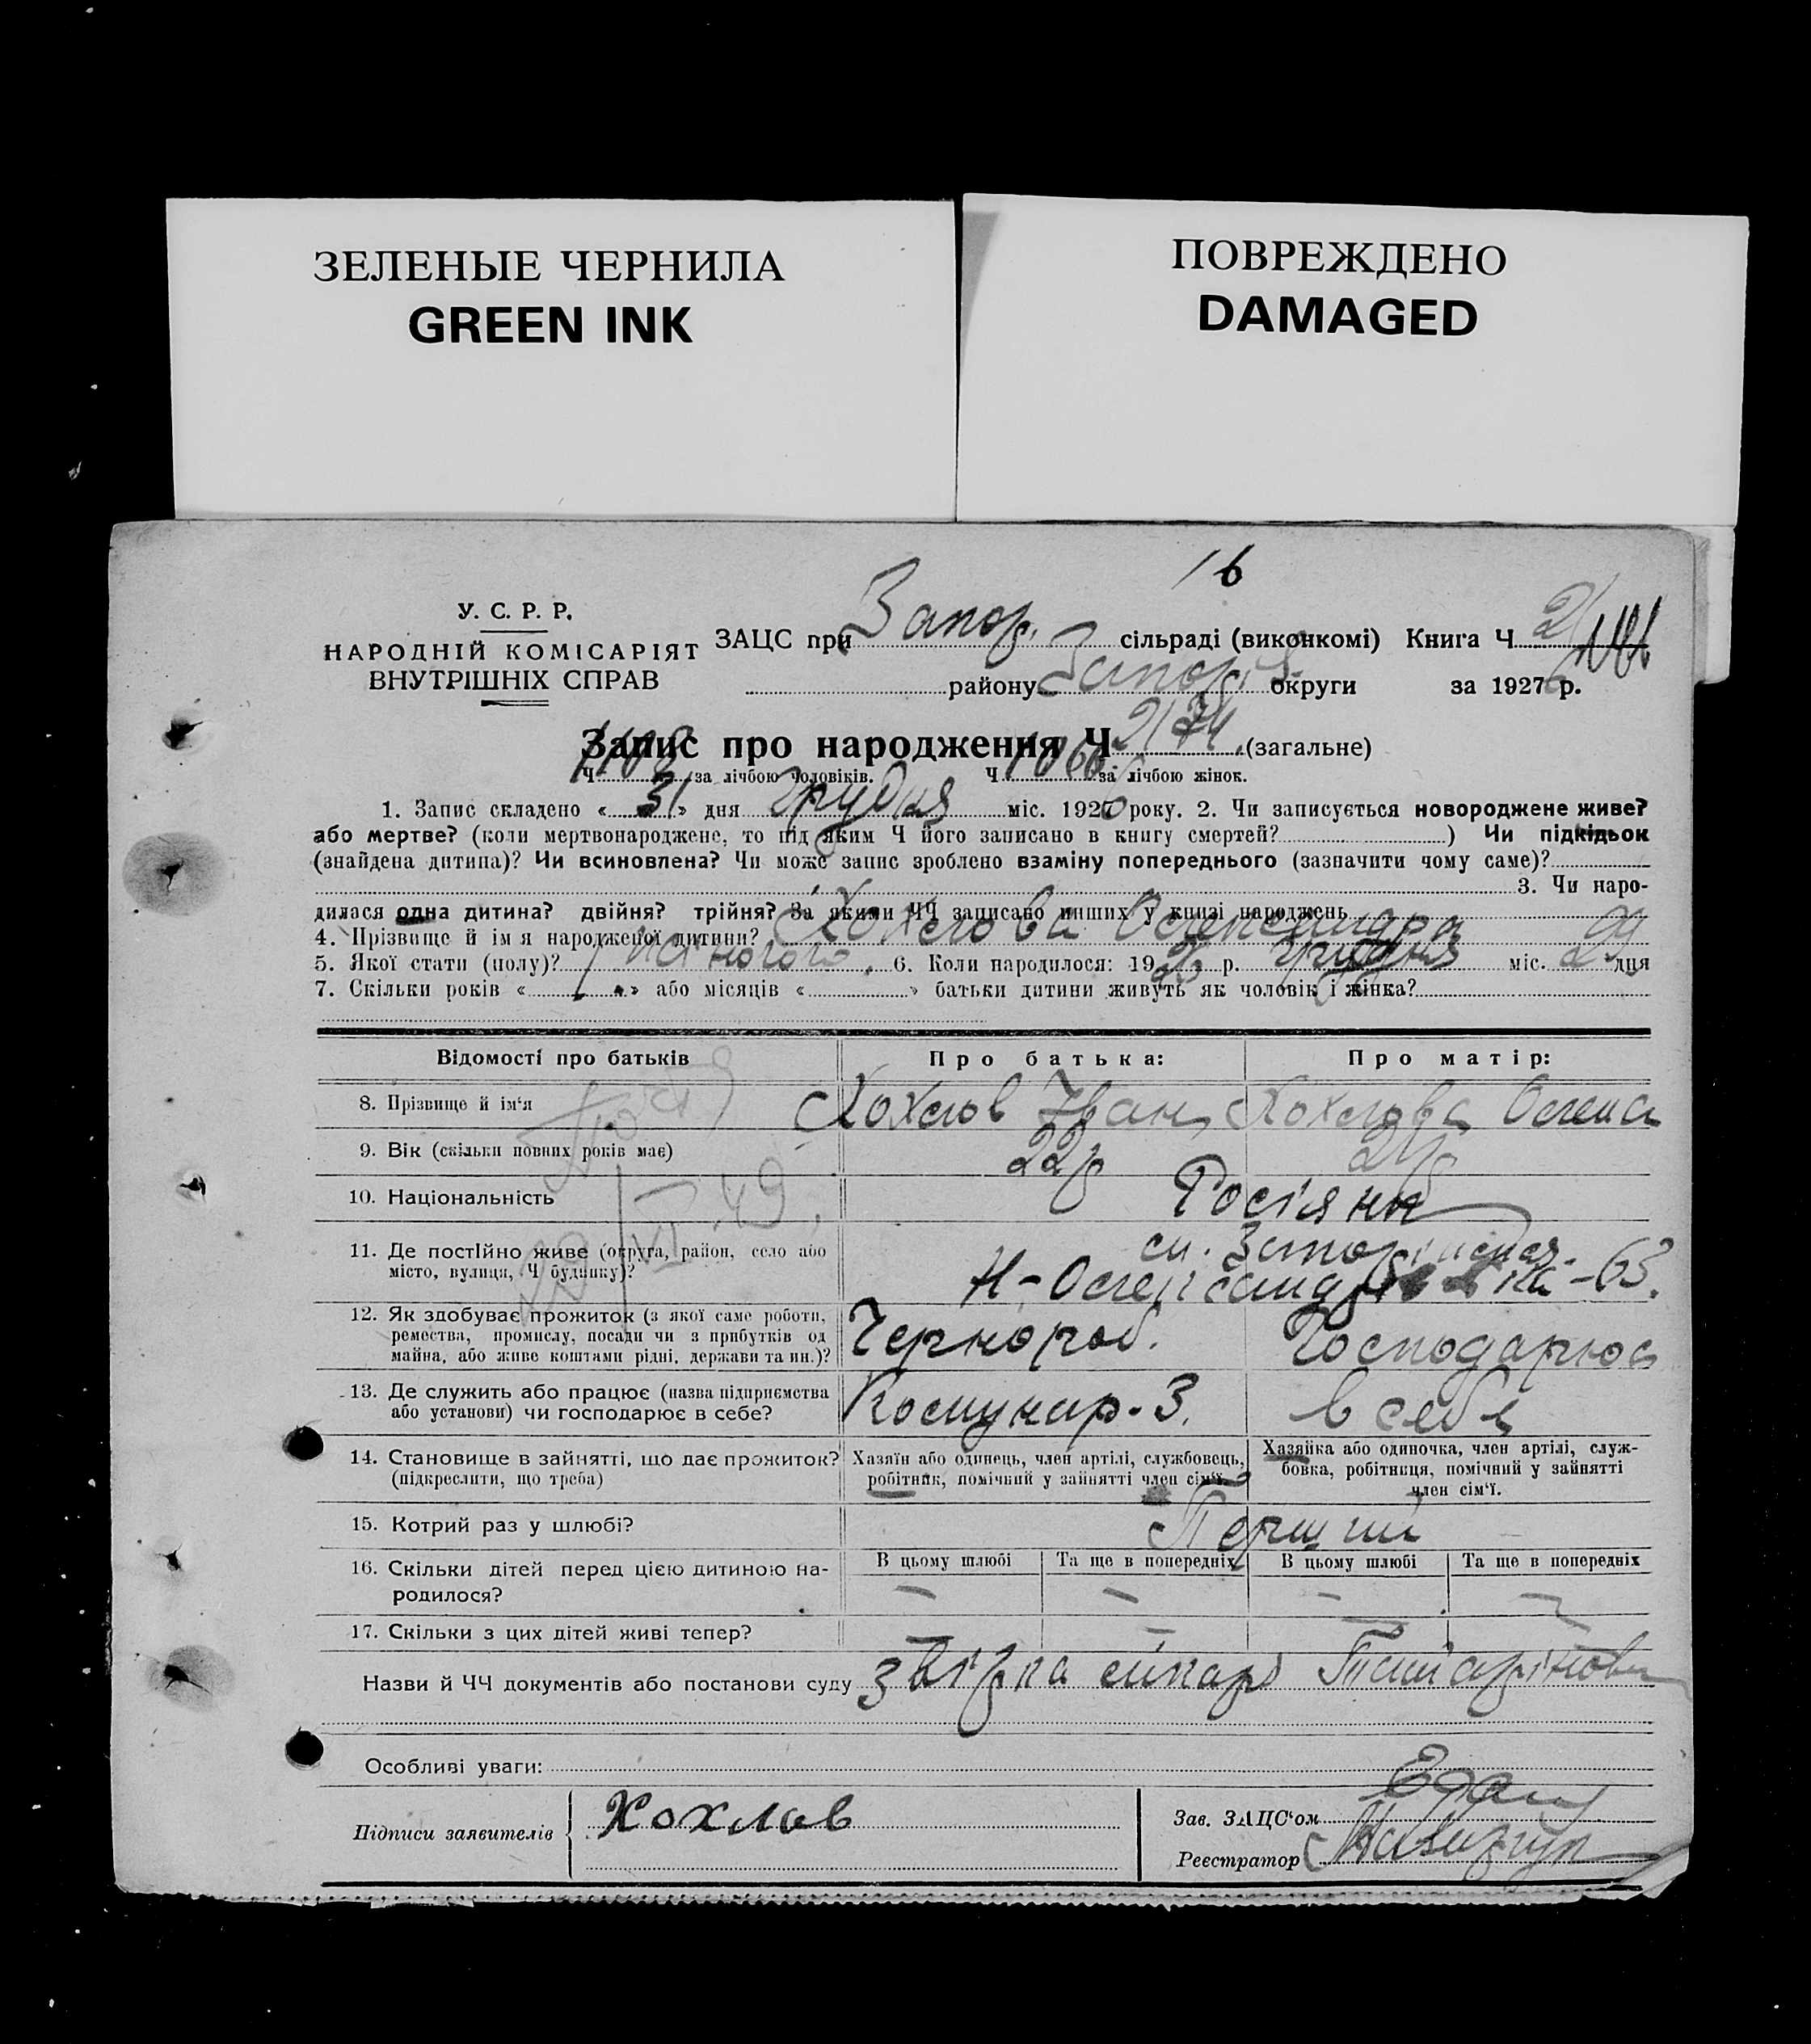 ЗЕЛЕНЫЕ ЧЕРНИЛА
GREEN INK
ПОВРЕЖДЕНО
DAMAGED
16
У. С. Р. Р.
НАРОДНІЙ КОМІСАРІЯТ
ВНУТРІШНІХ СПРАВ
ЗАЦС при Запор. сільраді (виконкомі) Книга Ч
району Запоріз. округи за 1927 6 р.
Запис про народження Ч 2174 (загальне)
Ч 1108 за лічбою чоловіків. Ч 1066 за лічбою жінок.
1. Запис складено « 31 » дня Грудня міс. 1927 6 року. 2. Чи записується новороджене живе?
або мертве? (коли мертвонароджене, то під яким Ч його записано в книгу смертей? ) Чи підкідьок
(знайдена дитина)? Чи всиновлена? Чи може запис зроблено взаміну попереднього (зазначити чому саме)?
3. Чи наро-
дилася одна дитина? двійня? трійня? За якими ЧЧ записано инших у книзі народжень
4. Прізвище й ім я народженої дитини? Хохлова Олександра
5. Якої стати (полу)? жіночого. 6. Коли народилося: 19 26 р. грудня міс. 29 дня
7. Скільки років « » або місяців « » батьки дитини живуть як чоловік і жінка?
Відомості про батьків
Про батька:
Про матір:
8. Прізвище й ім'я
Хохлов Іван
Хохлова Олена
9. Вік (скільки повних років має)
22р
21р
10. Національність
Росіяни
11. Де постійно живе (округа, район, село або
місто, вулиця, Ч будинку)?
Н-Олександрівка-63.
VI.49
12. Як здобуває прожиток (з якої саме роботи,
ремества, промислу, посади чи з прибутків од
майна, або живе коштами рідні, держави та ин.)?
Чернороб.
Господарює
13. Де служить або працює (назва підприємства
або установи) чи господарює в себе?
Комунар-3.
в себе
14. Становище в зайнятті, що дає прожиток?
(підкреслити, що треба)
Хазяїн або одинець, член артілі, службовець,
робітник, помічний у зайнятті член сім'ї.
Хазяйка або одиночка, член артілі, служ-
бовка, робітниця, помічний у зайнятті
член сім'ї.
15. Котрий раз у шлюбі?
Перший
16. Скільки дітей перед цією дитиною на-
родилося?
В цьому шлюбі
Та ще в попередніх
В цьому шлюбі
Та ще в попередніх
– – – –
17. Скільки з цих дітей живі тепер?
– – – –
Назви й ЧЧ документів або постанови суду звістка лікаря
Особливі уваги:
Підписи заявителів
Хохлов
Зав. ЗАЦС'ом
Реєстратор